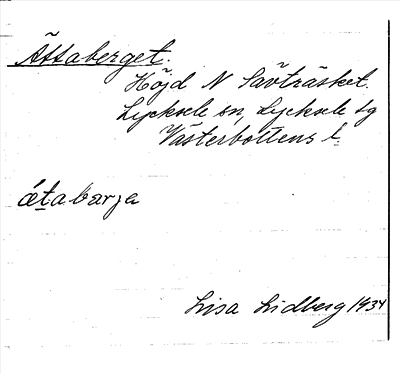 Åttaberget.
Höjd N Sävträsket.
Lycksele sn, Lycksele lg
Västerbottens l.
átabarja
Lisa Lidberg 1934